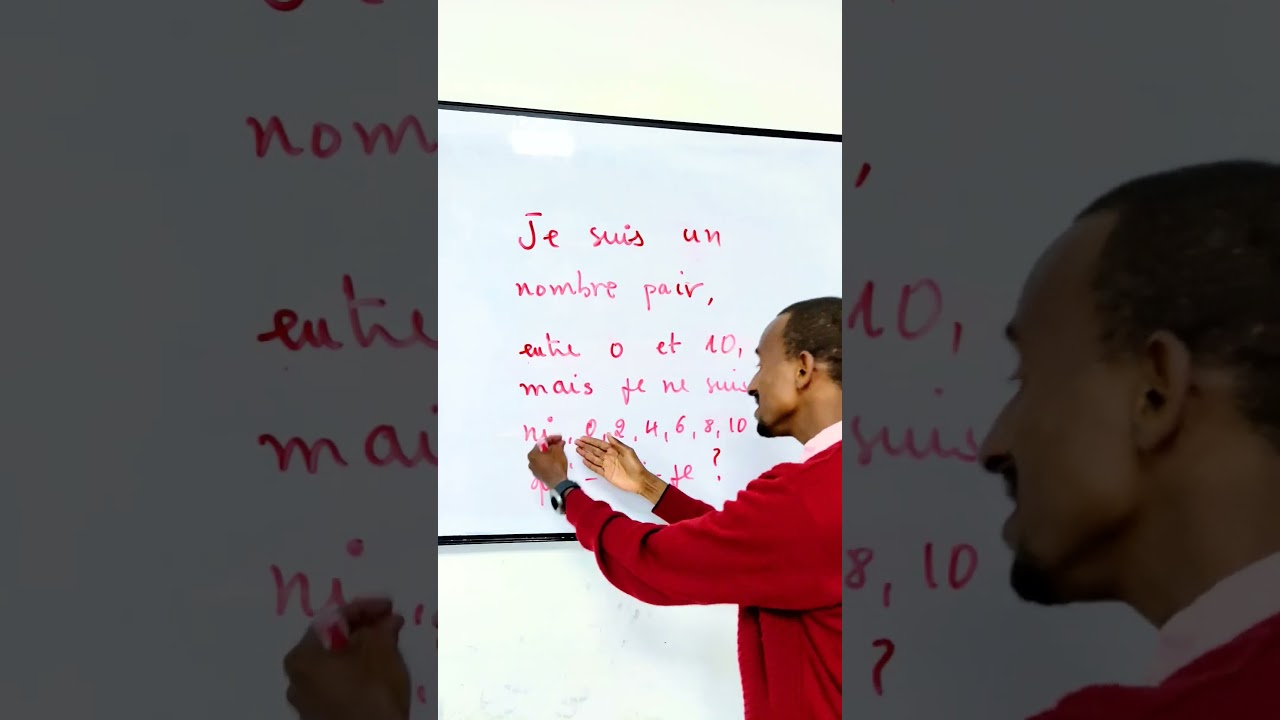 Je suis un
nombre pair,
entre 0 et 10,
mais je ne suis
ni, 0, 2, 4, 6, 8, 10
-je ?